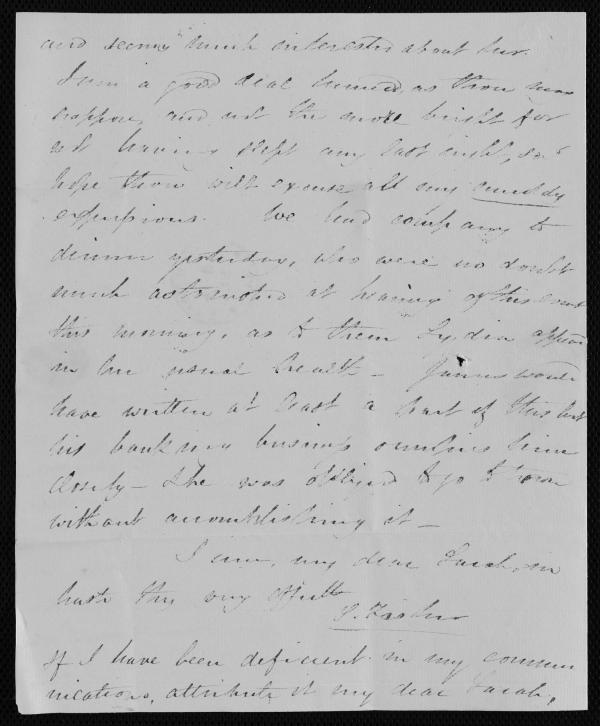 and seems much interested about her.
I am a good deal hurried, as thou may
suppose, and not the more bright for
not having slept any last night, so I
hope thou will excuse all my muddy
effusions. We had company to
dinner yesterday, who were no doubt
much astonished at hearing of this event
this morning, as to them Lydia appear
in her usual health – James would
have written at least a part of this but
his banking business confines him
closely – he was obliged to go to town
without accomplishing it –
I am, my dear Sarah, in
haste thy very affect
S. Fisher
If I have been deficient in my commu
nications, attribute it my dear Sarah,